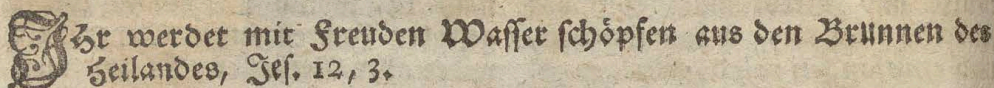 IHr werdet mit Freuden Waſſer ſchöpfen aus den Brunnen des
Heilandes, Jeſ. 12, 3.